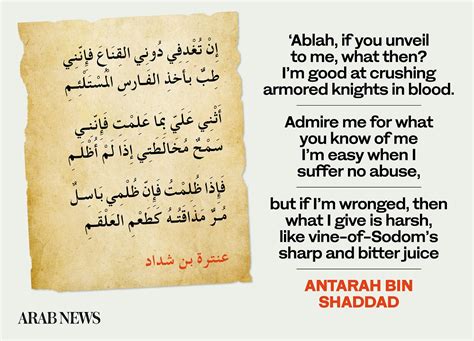 إنْ تُغْدِفي دُوني القِنَاعَ فإِنَّني
طِبٌّ بِأَخذِ الفارسِ الْمُسْتَلْئِمِ
أَثْني عَلَيَّ بِمَا عَلِمْتِ فَإنَّني
سَمْحٌ مُخَالَطَتي إذَا لَمْ أُظْلَمِ
فَإذَا ظُلِمْتُ فَإنَّ ظُلْمِيَ بَاسِلٌ
مُرٌّ مَذَاقَتُهُ كَطَعْمِ العَلْقَمِ
عنترة بن شداد
ARAB NEWS
‘Ablah, if you unveil
to me, what then?
I’m good at crushing
armored knights in blood.
Admire me for what
you know of me
I’m easy when I
suffer no abuse,
but if I’m wronged, then
what I give is harsh,
like vine-of-Sodom’s
sharp and bitter juice
ANTARAH BIN
SHADDAD